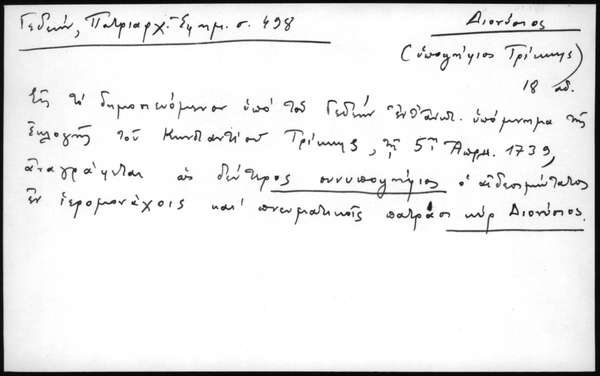 Γεδεών, Πατριαρχ. Ἐφημ. σ. 498
Διονύσιος
(ὑποψήφιος Τρίκκης)
18 αἰ.
Εἰς τὸ δημοσιευόμενον ὑπὸ τοῦ Γεδεὼν ὑπόμνημα τῆς
ἐκλογῆς τοῦ Τρίκκης, τῇ 5ῃ Ἀπρ. 1739,
ἀναγράφεται ὡς δεύτερος συνυποψήφιος ὁ αἰδεσιμώτατος
ἐν ἱερομονάχοις καὶ πνευματικοῖς πατράσι κὺρ Διονύσιος.